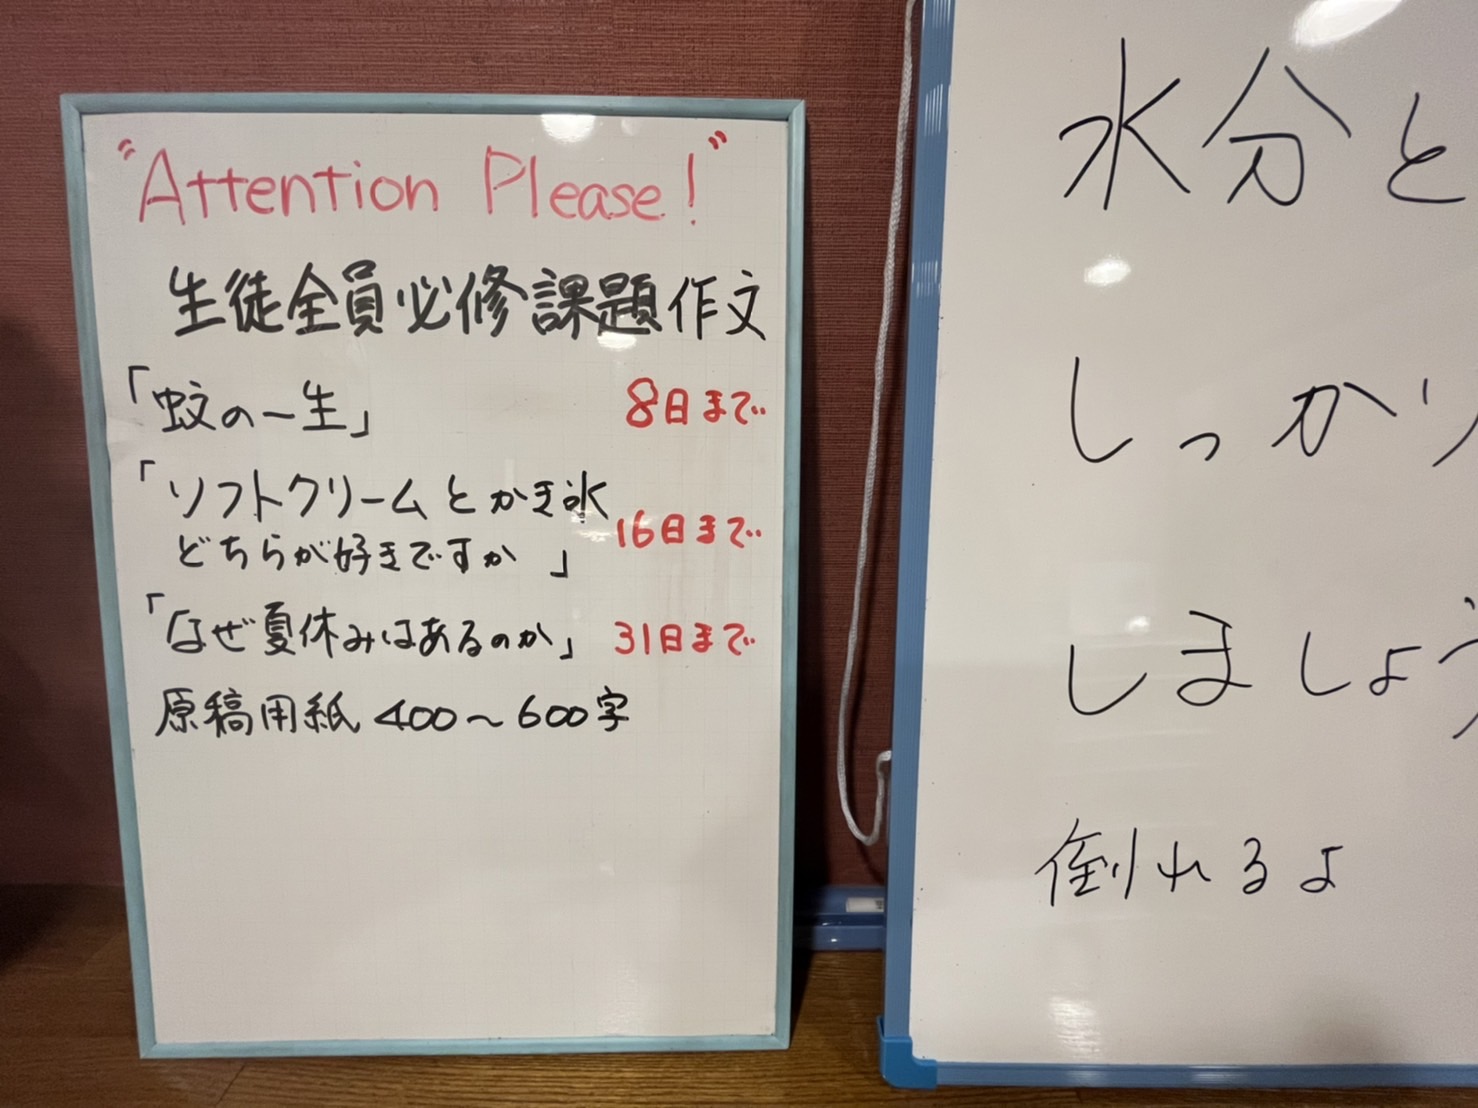 "Attention Please!"
生徒全員必修課題作文
「蚊の一生」 8日まで
「ソフトクリームとかき氷
どちらが好きですか」 16日まで
「なぜ夏休みはあるのか」 31日まで
原稿用紙 400〜600字
水分と
しっかり
しましょう
倒れるよ